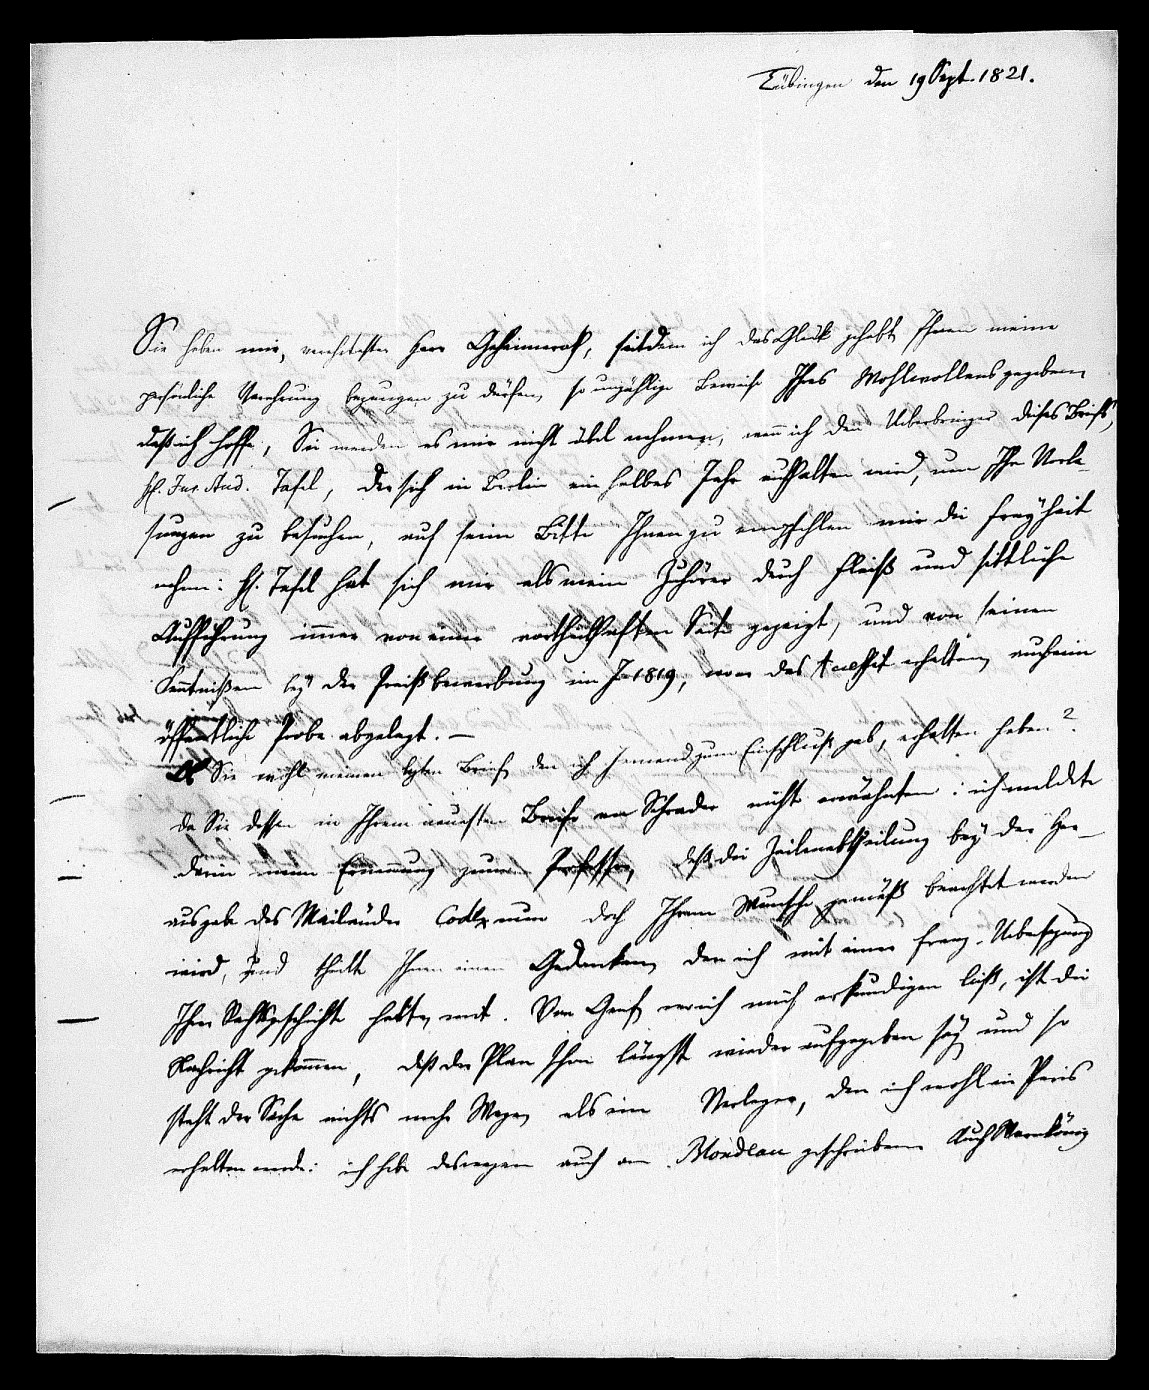 Tübingen den 19 Sept. 1821.
Sie haben mir, verehrtester Herr Geheimerath, seitdem ich das Glük gehabt Ihnen meine
persönliche Verehrung bezeugen zu dürfen, so unzählige Beweise Ihres Wohlwollens gegeben,
daß ich hoffe, Sie werden es mir nicht übel nehmen, wenn ich den Ueberbringer dieses Briefs,
H. Jur. Aud. Tafel, der sich in Berlin ein halbes Jahr aufhalten wird, um Ihre Vorle
sungen zu besuchen, auf seine Bitte Ihnen zu empfehlen mir die Freyheit
nehme: H. Tafel hat sich mir als mein Zuhörer durch Fleiß und sittliche
Aufführung immer von einer vortheilhaften Seite gezeigt, und von seinen
Kenntnißen bey der Preißbewerbung im J. 1819, wo er das Accessit erhalten, auch eine
öffentliche Probe abgelegt. –
Ob Sie wohl meinen lezten Brief, den ich jemand zum Einschluß gab, erhalten haben?
da Sie dessen in Ihrem neuesten Briefe an Schrader nicht erwähnten: ich meldete
darin meine Ernennung zum Professor, daß die Zeilenabtheilung bey der Her
ausgabe des Mailänder Codex nun doch Ihrem Wunsche gemäß beachtet werden
wird, und theilte Ihnen einen Gedanken, den ich mit einer franz. Uebersezung
Ihrer Rechtsgeschichte hatte, mit. Von Genf, wo ich mich erkundigen ließ, ist die
Nachricht gekommen, daß der Plan schon längst wieder aufgegeben sey und so
steht der Sache nichts mehr Wege, als ein Verleger, den ich wohl in Paris
erhalten werde: ich habe deswegen auch an geschrieben. Auch Warnkönig